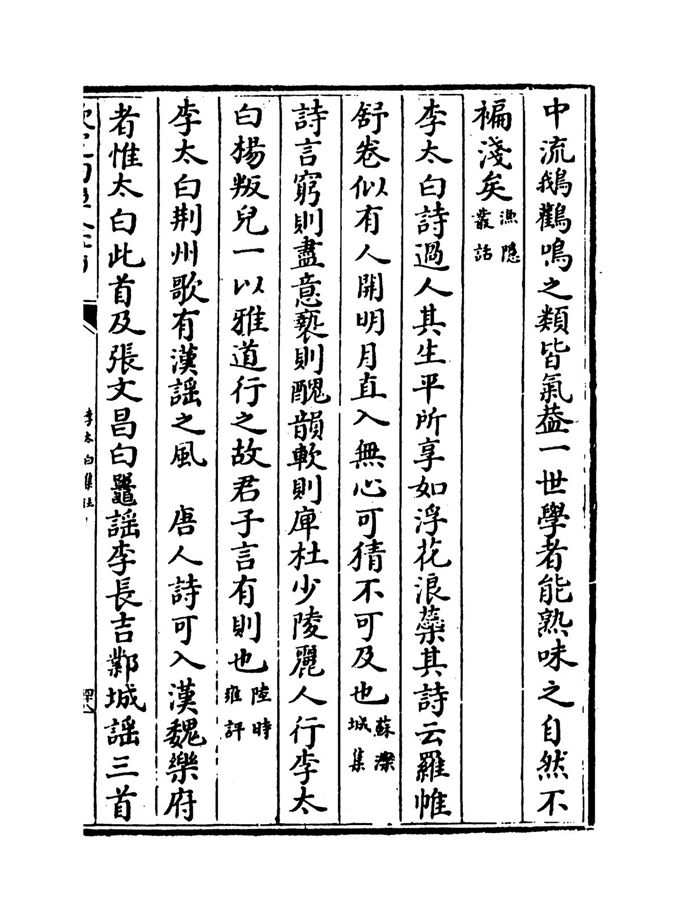 中流鵝鸛鳴之類皆氣葢一世學者能熟味之自然不
褊淺矣漁隱叢話
李太白詩過人其生平所享如浮花浪蘂其詩云羅帷
舒卷似有人開明月直入無心可猜不可及也蘇濼城集
詩言窮則盡意䙝則醜韻軟則庳杜少陵麗人行李太
白楊叛兒一以雅道行之故君子言有則也陸時雍評
李太白荆州歌有漢謡之風　唐人詩可入漢魏樂府
者惟太白此首及張文昌白鼉謡李長吉鄴城謡三首
李太白集注